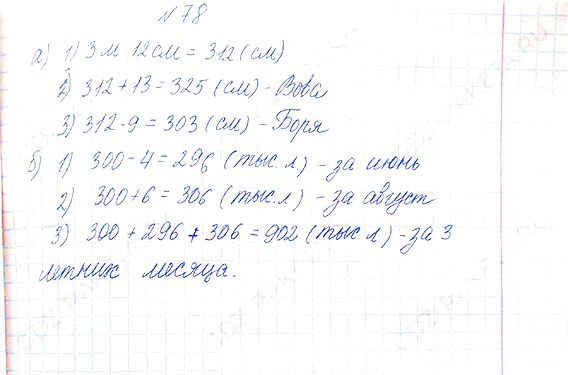 №78
а) 1) 3 м 12 см = 312 (см)
2) 312 + 13 = 325 (см) - Вова
3) 312 - 9 = 303 (см) - Боря
б) 1) 300 - 4 = 296 (тыс. л) - за июнь
2) 300 + 6 = 306 (тыс. л) - за август
3) 300 + 296 + 306 = 902 (тыс. л) - за 3
летних месяца.